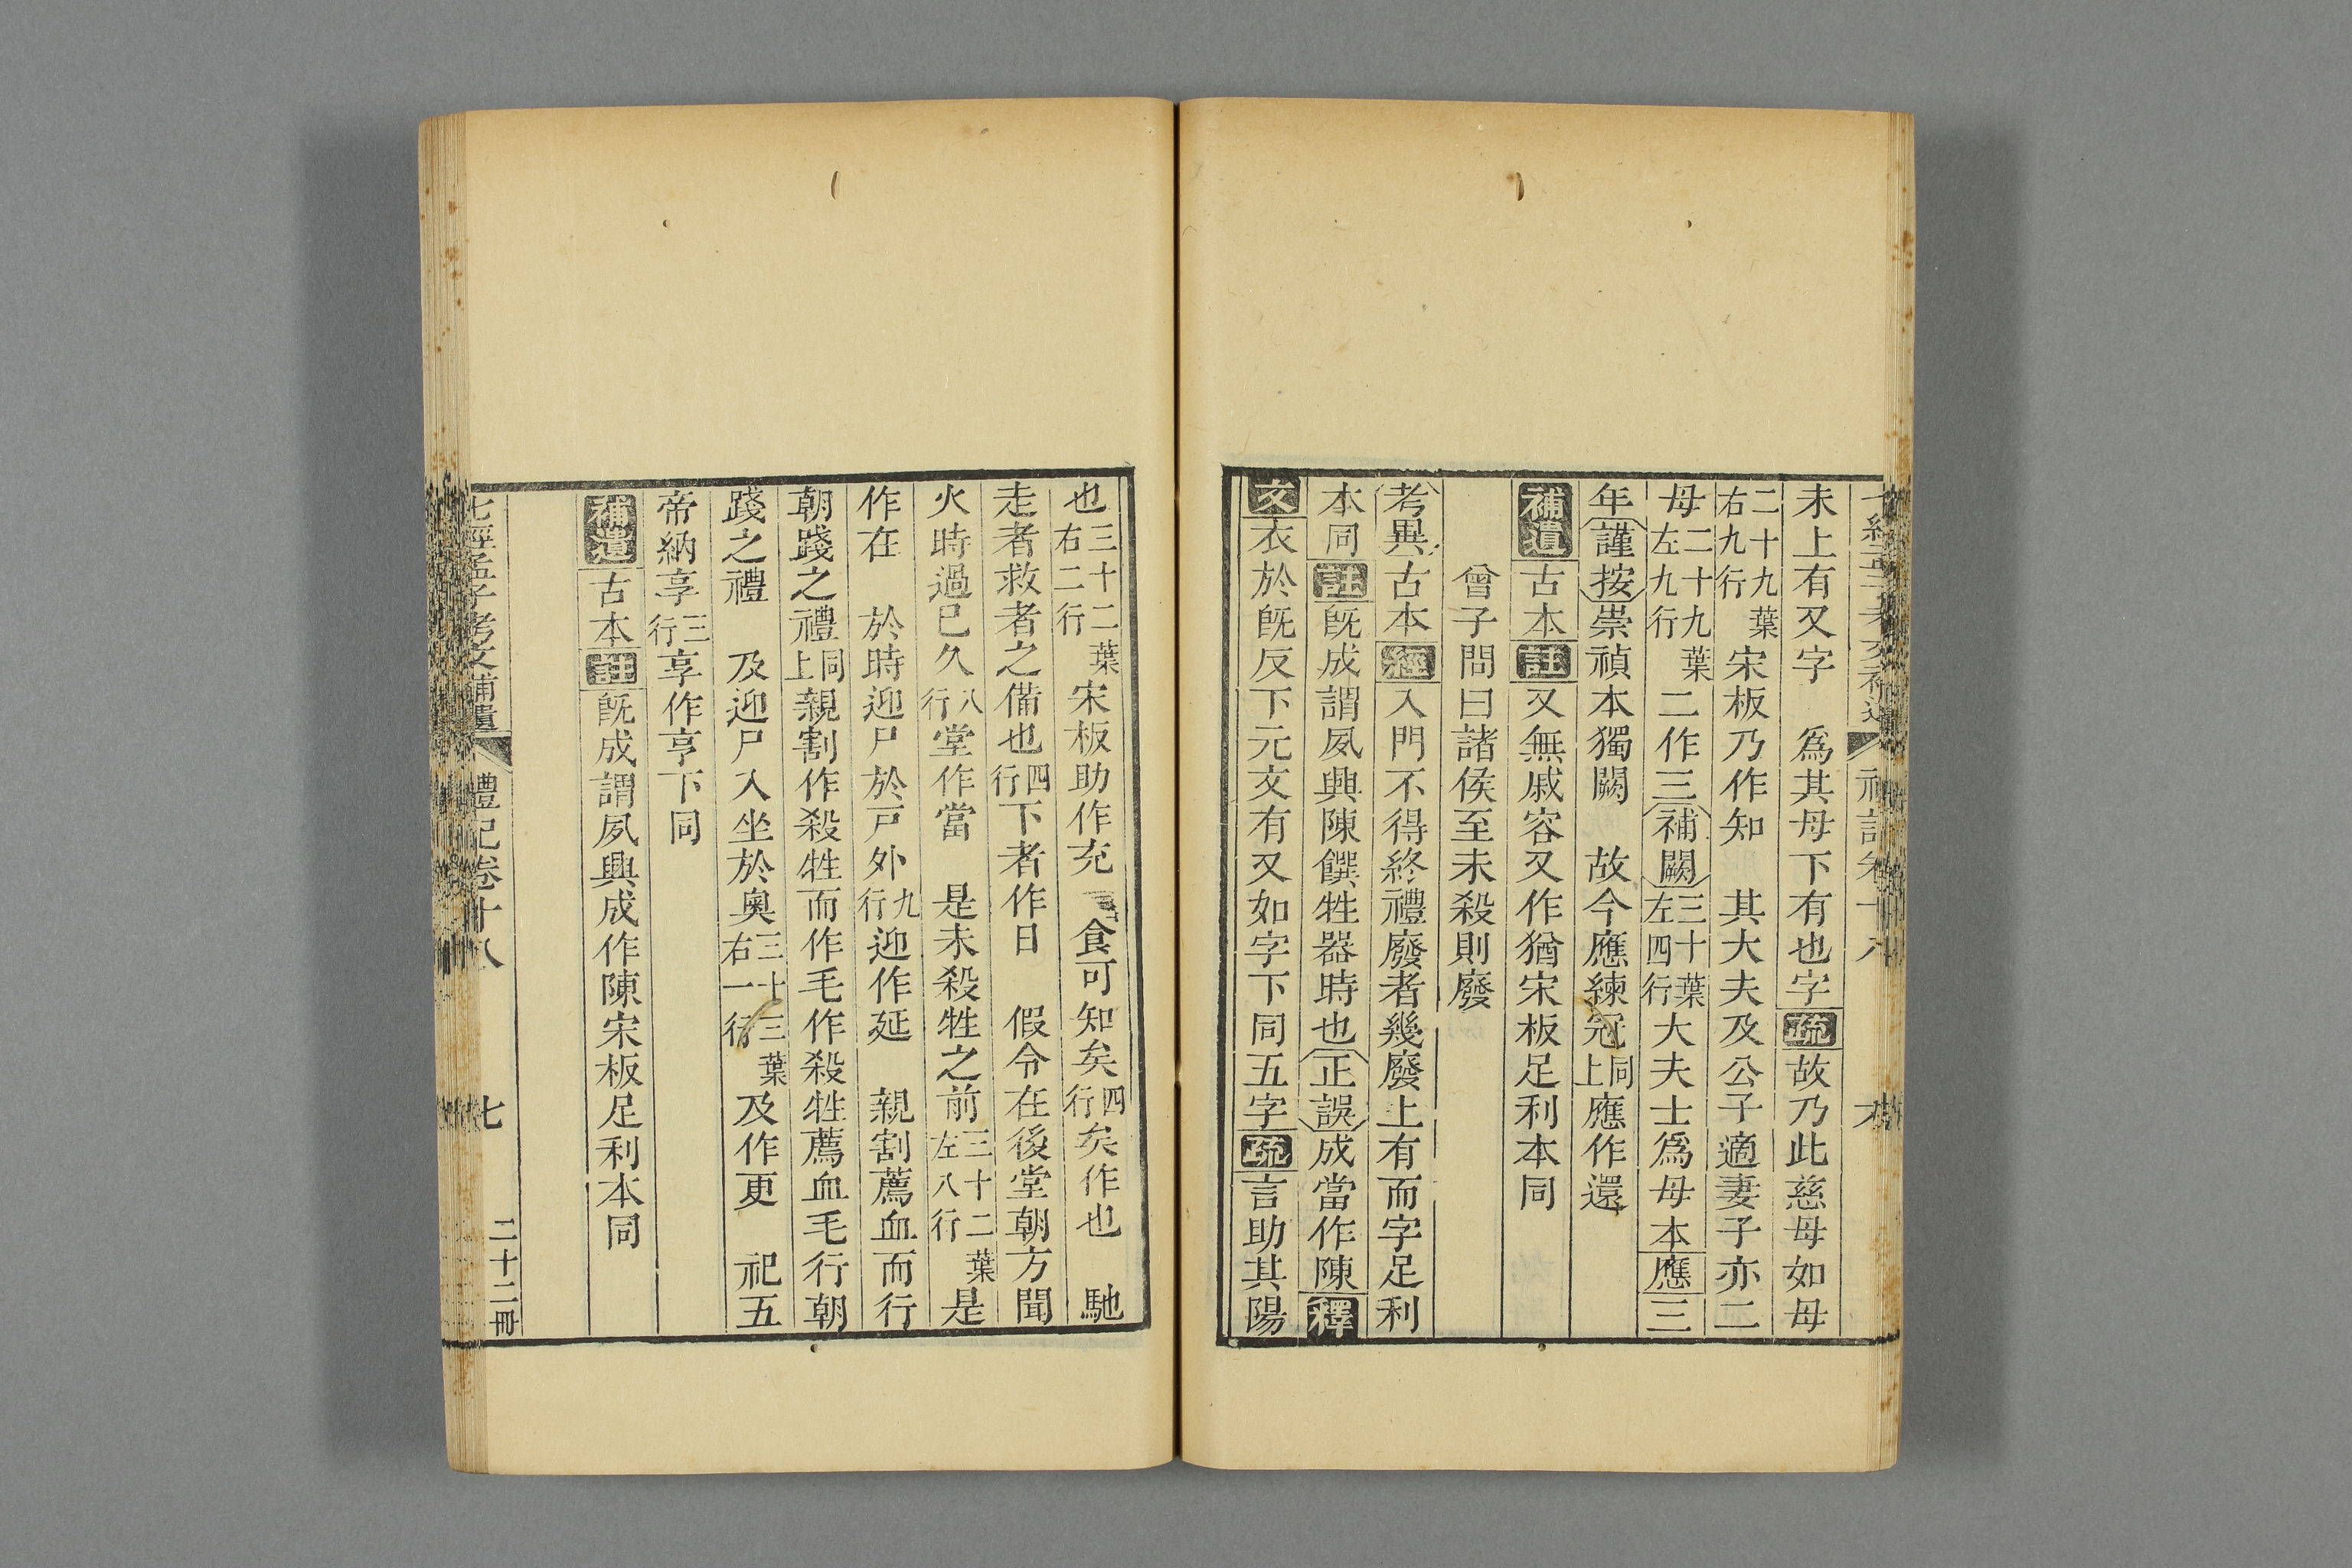 未上有又字　爲其母下有也字疏故乃此慈母如母
二十九葉右九行宋板乃作知　其大夫及公子適妻子亦二
母二十九葉左九行二作三補闕三十葉左四行大夫士爲母本應三
年謹按崇禎本獨闕　故今應練冠同上應作還
補遺古本註又無戚容又作猶宋板足利本同
曾子問曰諸侯至未殺則廢
考異古本經入門不得終禮廢者幾廢上有而字足利
本同註旣成謂夙興陳饌牲器時也正誤成當作陳釋
文衣於旣反下元文有又如字下同五字疏言助其陽
也三十二葉右二行宋板助作充　食可知矣四行矣作也　馳
走者救者之備也四行下者作日　假令在後堂朝方聞
火時過已久八行堂作當　是未殺牲之前三十二葉左八行是
作在　於時迎尸於戸外九行迎作延　親割薦血而行
朝踐之禮同上親割作殺牲而作毛作殺牲薦血毛行朝
踐之禮　及迎尸入坐於奧三十三葉右一行及作更　祀五
帝納享三行享作亨下同
補遺古本註旣成謂夙興成作陳宋板足利本同
七經孟子考文補遺　禮記卷十八　七　二十二冊